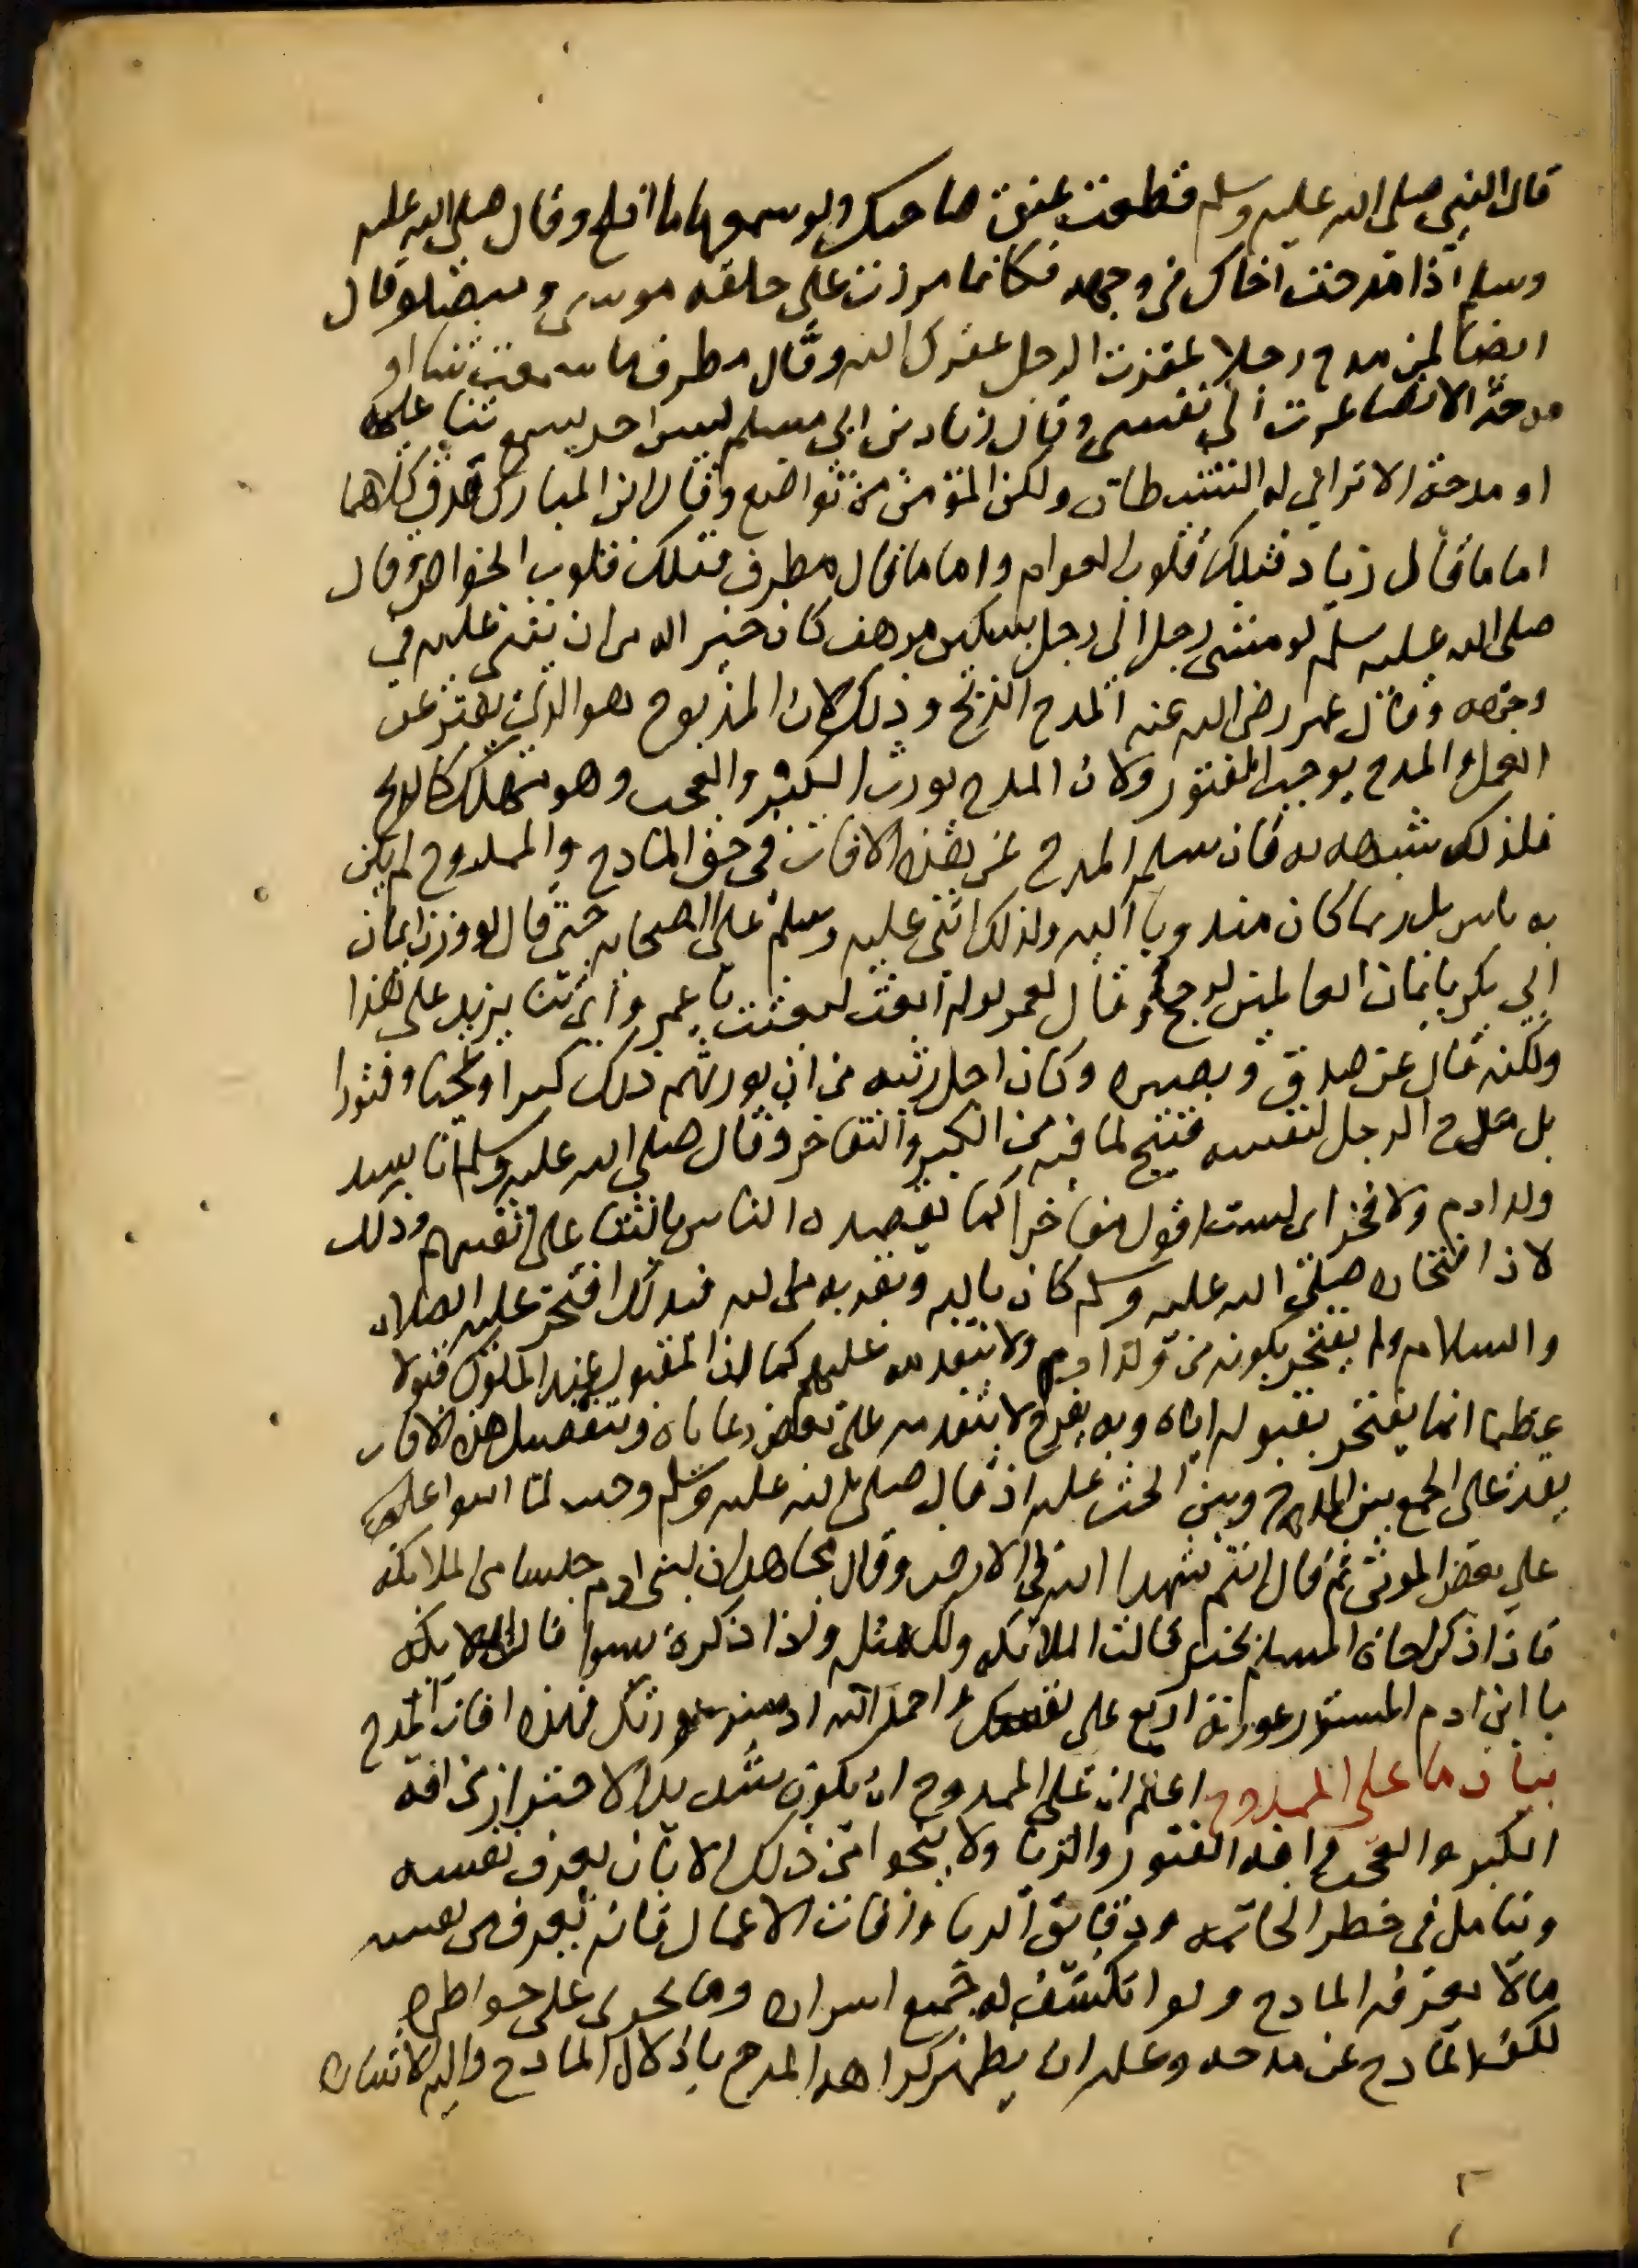 قال النبي صلى الله عليه وسلم قطعت عنق صاحبك ولو سمعها ما افلح وقال صلى الله عليه
وسلم اذا مدحت اخاك في وجهه فكانما مررت على حلقه موسى وميضا وقال
ايضا لمن مدح رجلا عقرت الرجل عقرك الله وقال مطرف ما سمعت ثنا او
مدحة الا تصاغرت الى نفسي وقال زياد بن ابي مسلم ليس احد يسمع ثنا عليه
او مدحة الا تراى له الشيطان ولكن المؤمن من تواضع وقال ابن المبارك صدق كلاهما
اما ما قال زياد فتلك قلوب العوام واما ما قال مطرف فتلك قلوب الخواص وقال
صلى الله عليه وسلم لو مشى رجل الى رجل بسكين مرهف كان خير اله من ان يثنى عليه في
وجهه وقال عمر رضى الله عنه المدح الذبح وذلك لان المذبوح هو الذي يفتر عن
العمل والمدح يوجب الفتور ولان المدح يورث الكبر والعجب وهو مهلك كالذبح
فلذلك شبهه به فان سلم المدح عن هذه الافات في حق المادح والممدوح لم يكن
به باس بل ربما كان مندوبا اليه ولذلك اثنى عليه وسلم على الصحابه حتى قال لو وزن ايمان
ابي بكر بايمان العالمين لرجح وقال لعمر لو لم ابعث لبعثت يا عمر واي ثنا يزيد على هذا
ولكنه قال عن صدق وبصيره وكان اجل رتبه من ان يورثهم ذلك كبرا وعجبا وفتورا
بل مدح الرجل لنفسه قبيح لما فيه من الكبر والتفاخر وقال صلى الله عليه وسلم انا سيد
ولد ادم ولا فخر اى لست اقول متفاخرا كما يقصده الناس بالثنا على انفسهم وذلك
لان افتخاره صلى الله عليه وسلم كان بالله وبقربه من الله فبذلك افتخر عليه الصلاه
والسلام ولم يفتخر بكونه من ولد ادم ولا بتقدمه عليهم كما ان المقبول عند الملوك قبولا
عظيما انما يفتخر بقبوله اياه وبه يفرح لا بتقدمه على بعض رعاياه وبتفصيل هذه الافات
يقدر على الجمع بين المدح وبين الحث عليه اذ قال صلى الله عليه وسلم وجبت لما اثنوا عليه
على بعض الموتى ثم قال انتم شهدا الله في الارض وقال مجاهد ان لبنى ادم جلسا من الملائكه
فاذا ذكر اخاه المسلم بخير قالت الملائكه ولك مثله واذا ذكره بسوا قالت الملايكه
يا ابن ادم المستور عورته اربع على نفسك واحمد الله اذ ستر عورتك فهذه افات المدح
بيان ما على الممدوح اعلم ان على الممدوح ان يكون شديد الاحتراز من افه
الكبر والعجب وافه الفتور والريا ولا ينجوا من ذلك الا بان يعرف نفسه
ويتامل في خطر الخاتمه ودقايق الريا وافات الاعمال فانه يعرف من نفسه
مالا يعرفه المادح ولو انكشف له جميع اسراره وما يجرى على خواطره
لكف المادح عن مدحه وعليه ان يظهر كراهه المدح باذلال المادح واليه الاشاره